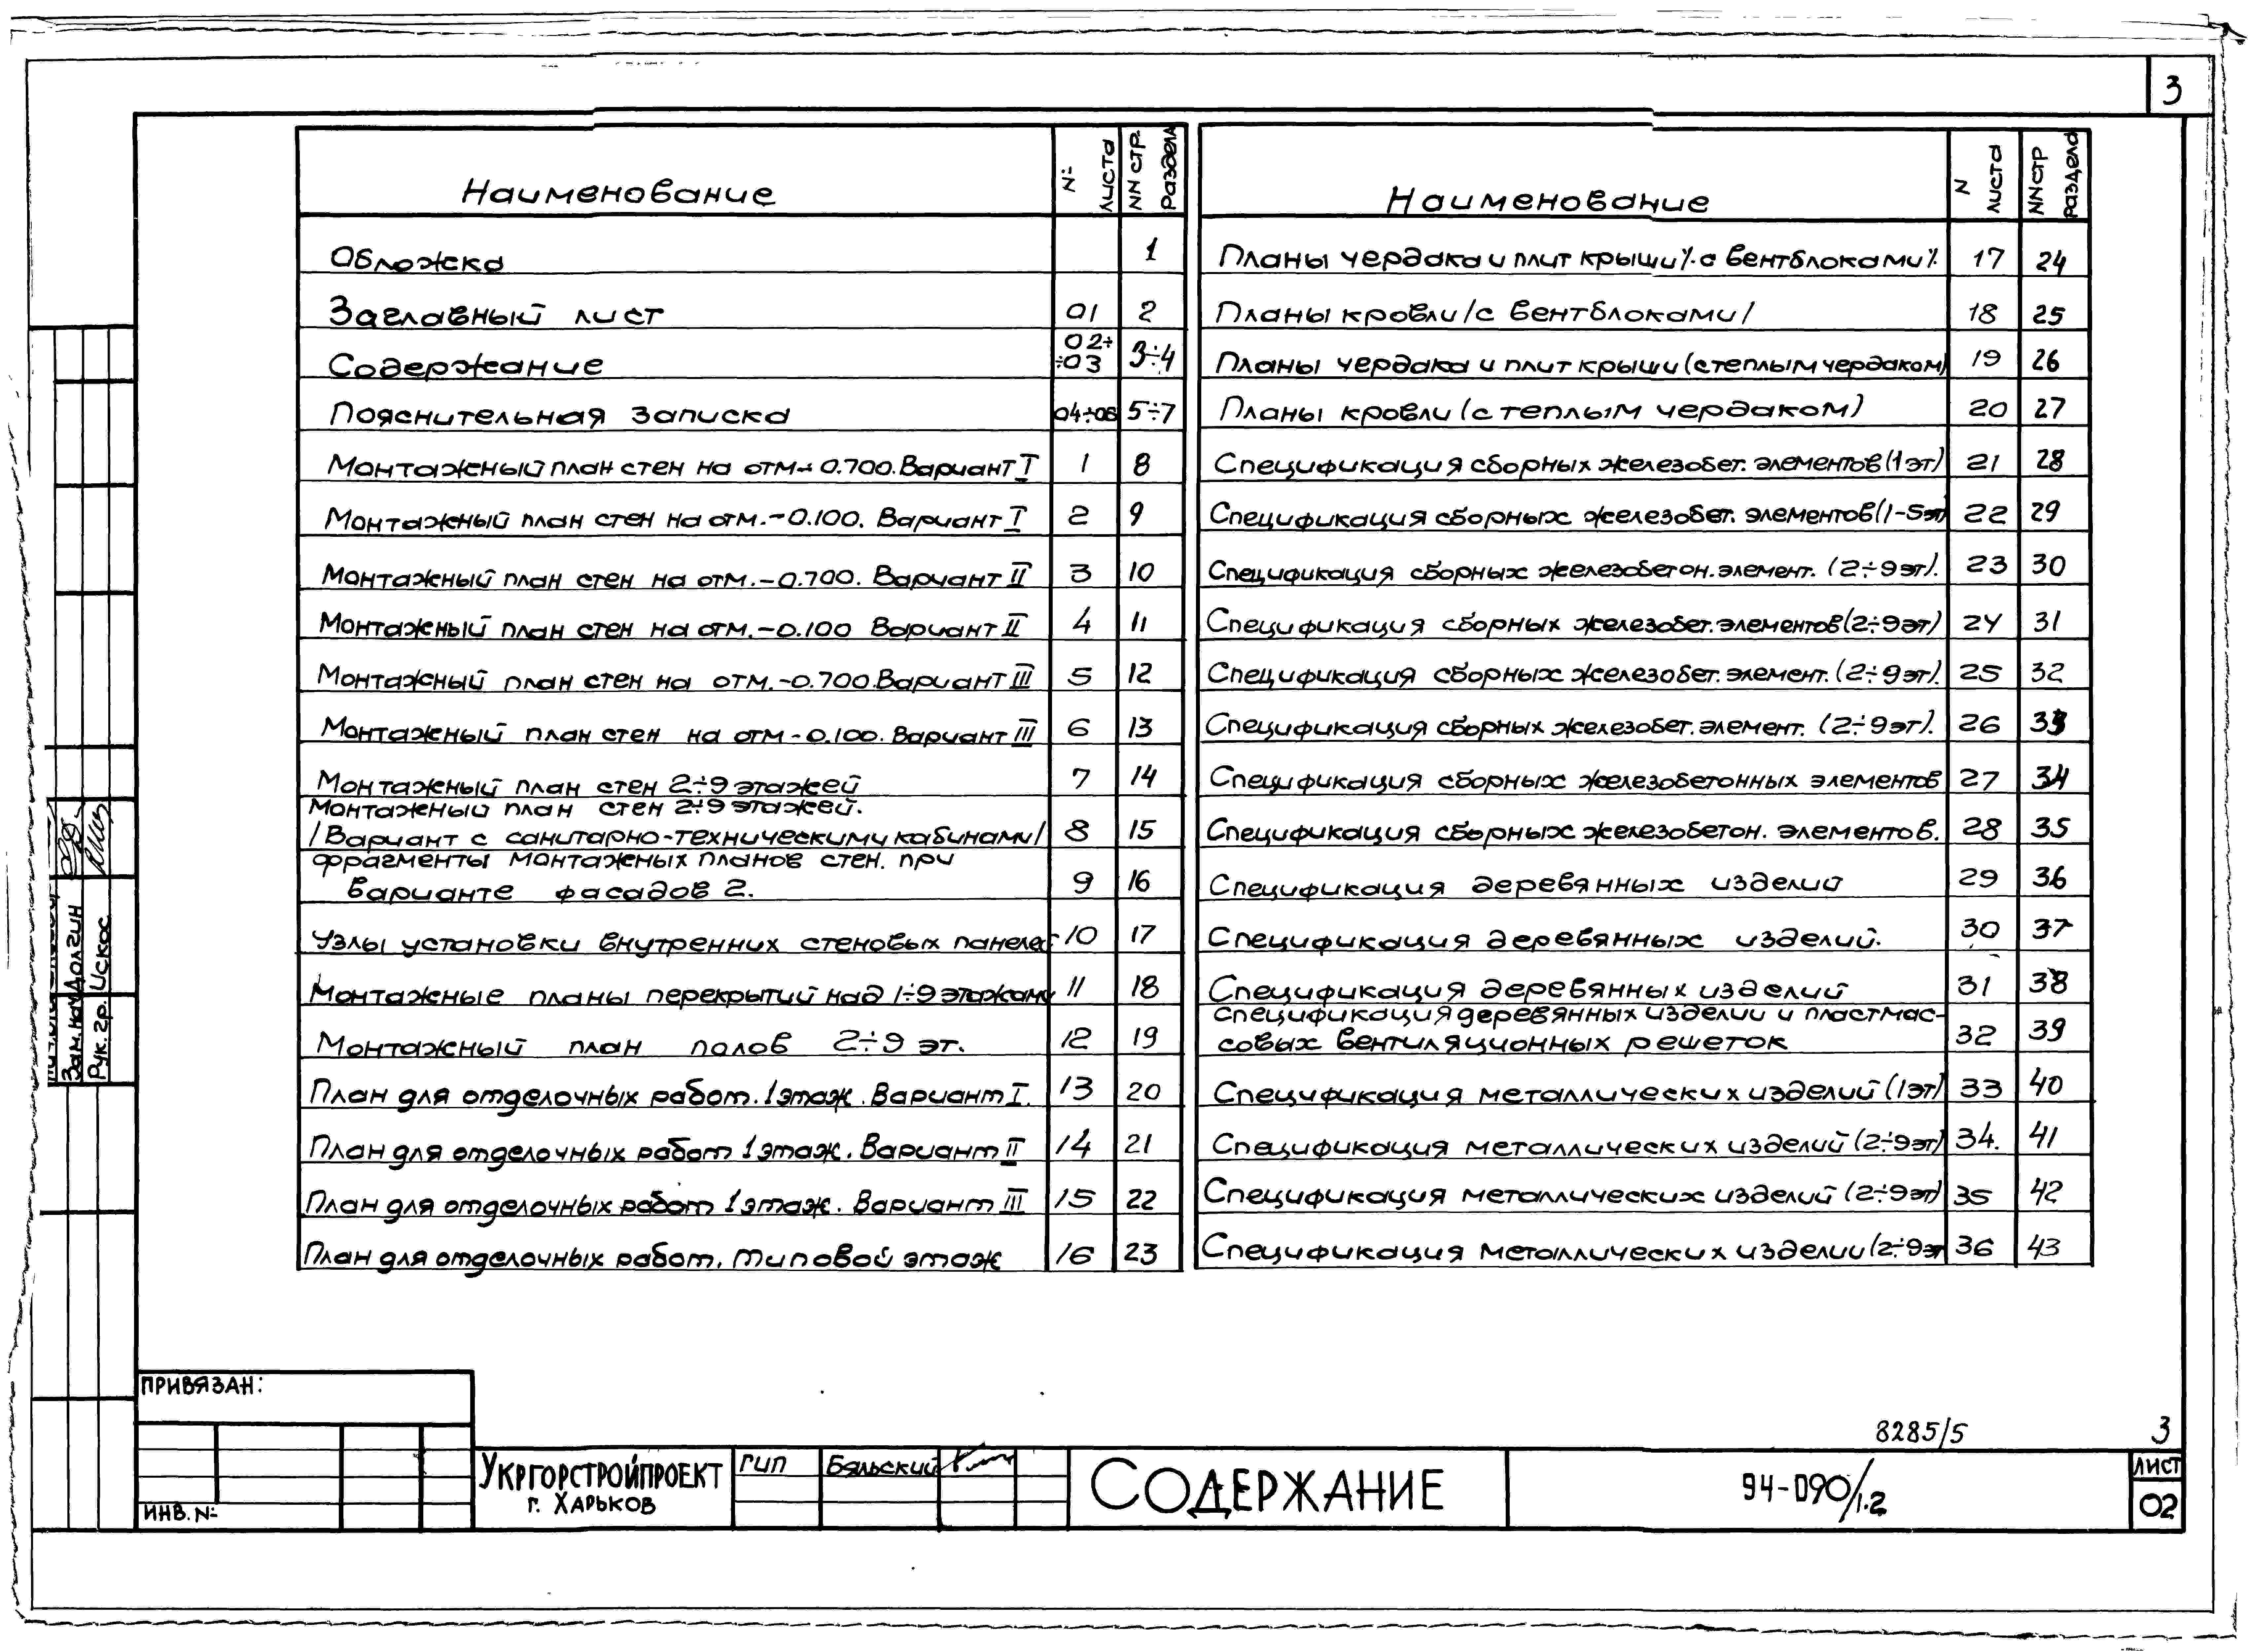 3
Наименование
№ листа
NN стр. раздела
Обложка 1
Заглавный лист 01 2
Содержание 02÷÷03 3÷4
Пояснительная записка 04÷06 5÷7
Монтажный план стен на отм.-0.700. Вариант I 1 8
Монтажный план стен на отм.-0.100. Вариант I 2 9
Монтажный план стен на отм.-0.700. Вариант II 3 10
Монтажный план стен на отм.-0.100 Вариант II 4 11
Монтажный план стен на отм.-0.700. Вариант III 5 12
Монтажный план стен на отм-0.100. Вариант III 6 13
Монтажный план стен 2÷9 этажей 7 14
Монтажный план стен 2÷9 этажей.
/Вариант с санитарно-техническими кабинами/ 8 15
Фрагменты монтажных планов стен. при
варианте фасадов 2. 9 16
Узлы установки внутренних стеновых панелей 10 17
Монтажные планы перекрытий над 1÷9 этажами 11 18
Монтажный план полов 2÷9 эт. 12 19
План для отделочных работ. 1 этаж. Вариант I. 13 20
План для отделочных работ 1 этаж. Вариант II 14 21
План для отделочных работ 1 этаж. Вариант III 15 22
План для отделочных работ. Типовой этаж 16 23
Наименование
N листа
NN стр раздела
Планы чердака и плит крыши /с вентблоками/. 17 24
Планы кровли /с вентблоками/ 18 25
Планы чердака и плит крыши (с теплым чердаком) 19 26
Планы кровли (с теплым чердаком) 20 27
Спецификация сборных железобет. элементов (1 эт) 21 28
Спецификация сборных железобет. элементов (1-5эт) 22 29
Спецификация сборных железобетон. элемент. (2÷9 эт). 23 30
Спецификация сборных железобет. элементов (2÷9эт) 24 31
Спецификация сборных железобет. элемент. (2÷9 эт). 25 32
Спецификация сборных железобет. элемент. (2÷9 эт). 26 33
Спецификация сборных железобетонных элементов 27 34
Спецификация сборных железобетон. элементов. 28 35
Спецификация деревянных изделий 29 36
Спецификация деревянных изделий. 30 37
Спецификация деревянных изделий 31 38
Спецификация деревянных изделий и пластмас-
совых вентиляционных решеток 32 39
Спецификация металлических изделий (1эт) 33 40
Спецификация металлических изделий (2÷9эт) 34. 41
Спецификация металлических изделий (2÷9 эт) 35 42
Спецификация металлических изделии (2÷9эт 36 43
Зам. нач Долгин
Рук. гр. Искос
ПРИВЯЗАН:
ИНВ. №
УКРГОРСТРОЙПРОЕКТ
г. ХАРЬКОВ
ГИП Бяльский
СОДЕРЖАНИЕ
8285/5 3
94-090/1.2
ЛИСТ
02